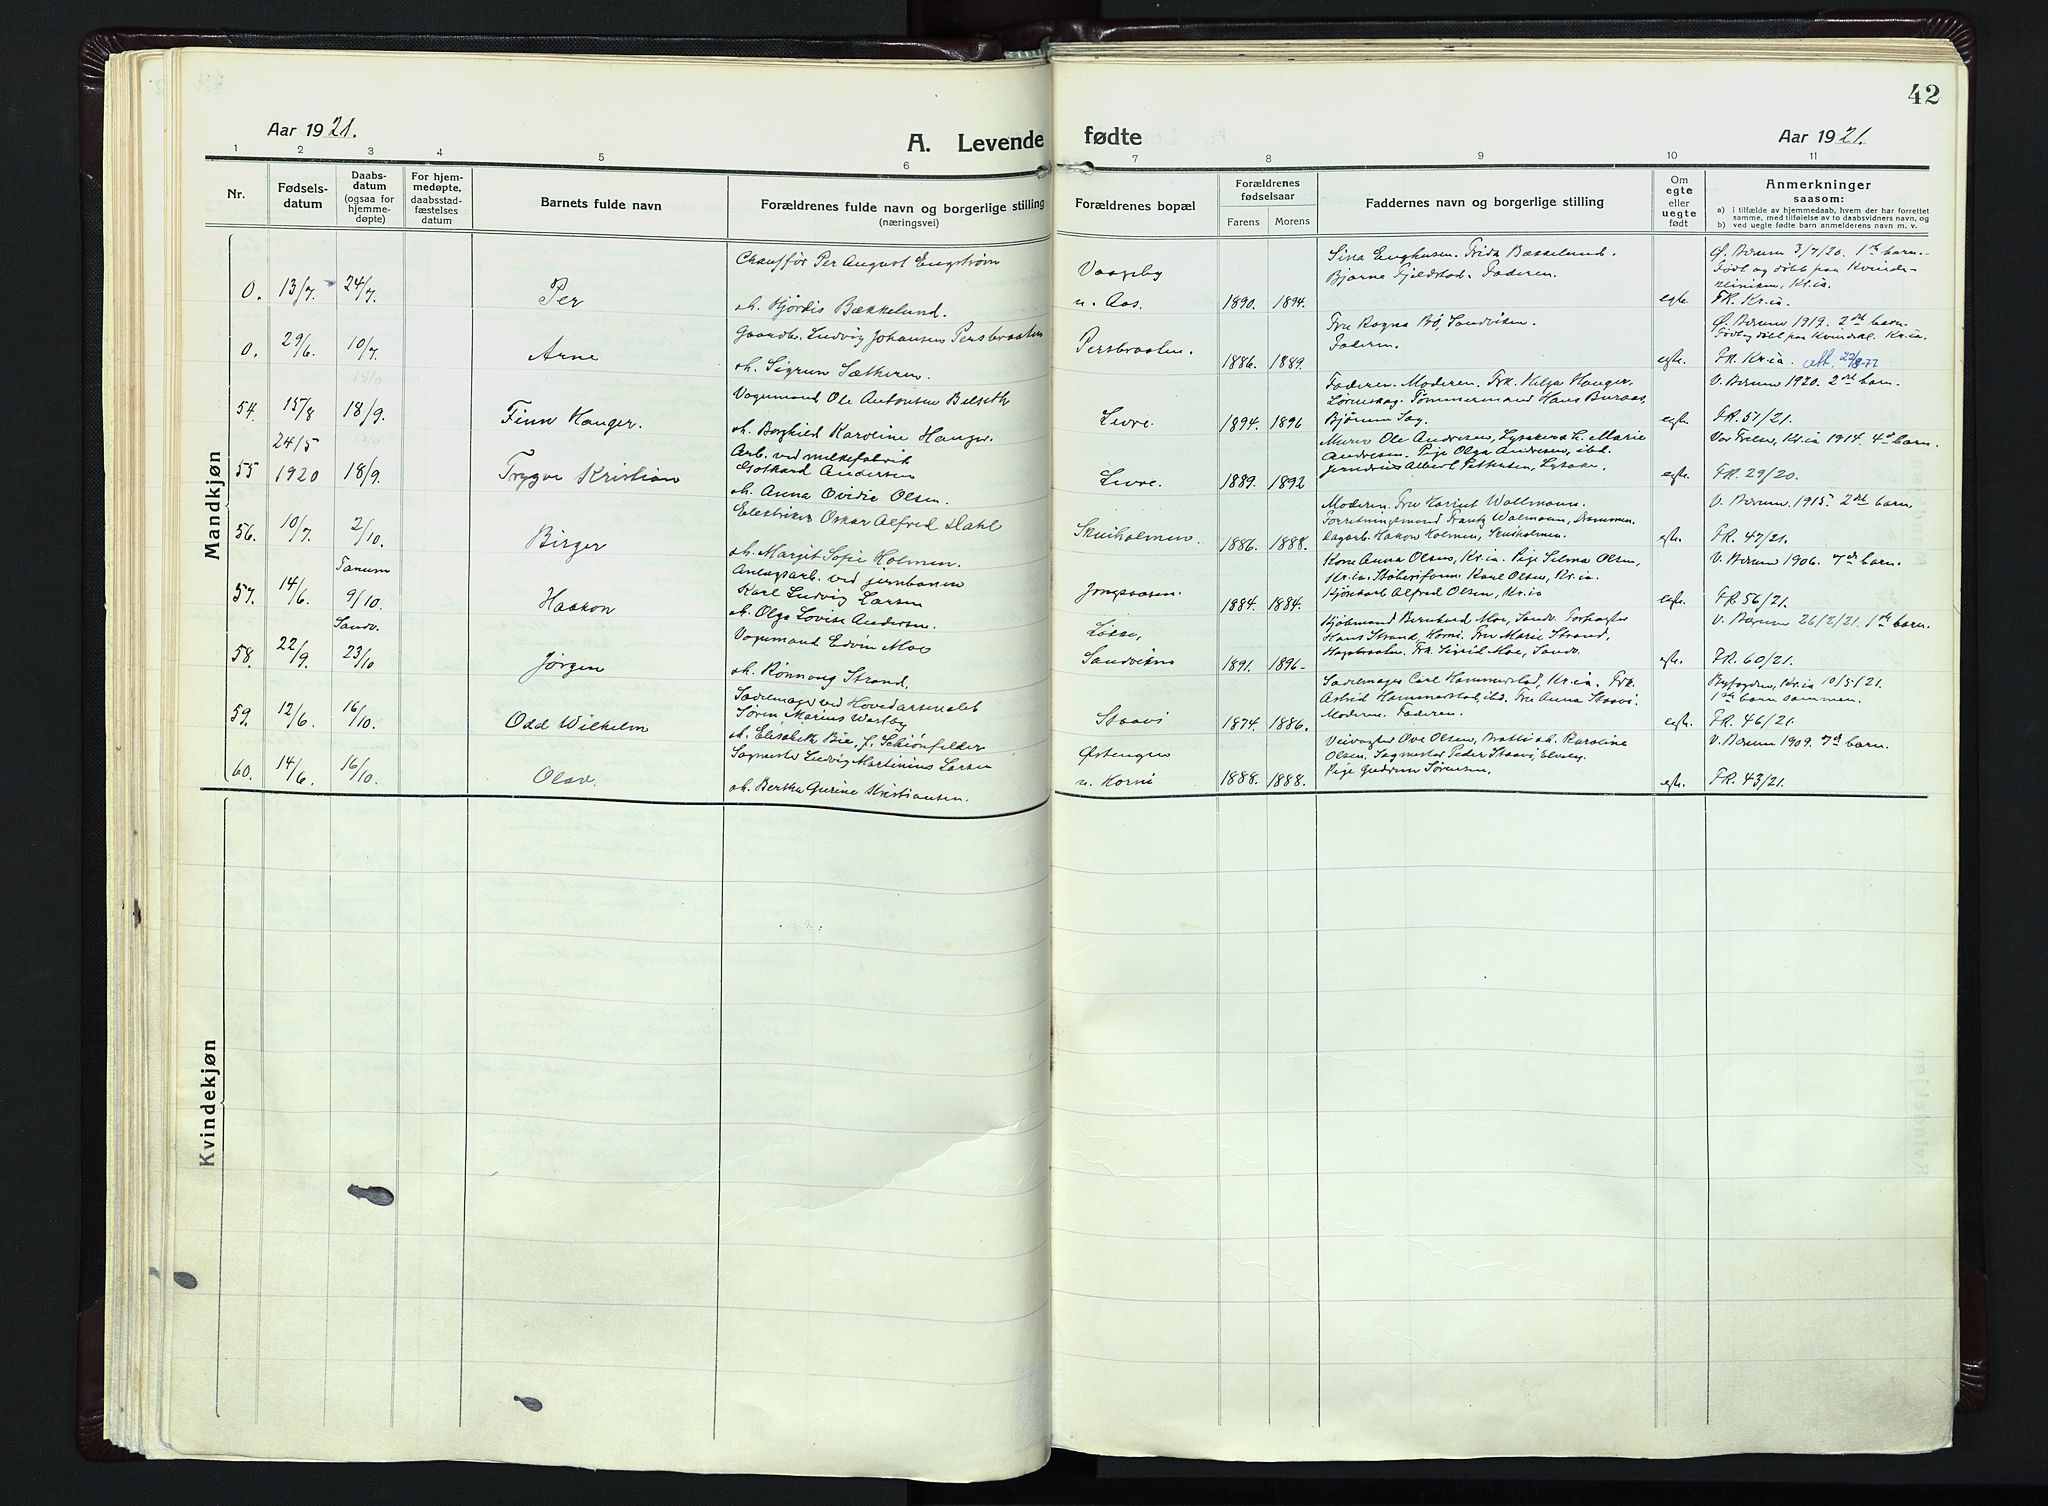 42
Aar 1921.
A. Levende fødte
Aar 1921.
1 2 3 4 5 6 7 8 9 10 11
Nr.
Fødsels-
datum
Daabs-
datum
(ogsaa for
hjemme-
døpte)
For hjem-
medøpte,
daabsstad-
fæstelses
datum
Barnets fulde navn
Forældrenes fulde navn og borgerlige stilling
(næringsvei)
Forældrenes bopæl
Forældrenes
fødselsaar
Farens Morens
Faddernes navn og borgerlige stilling
Om
egte
eller
uegte
født
Anmerkninger
saasom:
a) i tilfælde av hjemmedaab, hvem der har forrettet
samme, med tilføielse av to daabsvidners navn, og
b) ved uegte fødte barn anmelderens navn m. v.
Mandkjøn
0. 13/7. 24/7. Per
Chauffør Per August Engstrøm
oh. Hjørdis Bækkelund.
Vaageby
u. Aas. 1890. 1894.
Sina Enghusen. Frida Bækkelund.
Bjarne Gjeldstad. Faderen.
egte
Ø. Bærum 3/7/20. 1ste barn.
Født og døbt paa Kvinde-
kliniken, Kr.ia.
FR. Kr.ia.
0. 29/6. 10/7. Arne
Gaardbr. Ludvig Johansen Persbraaten
oh. Sigrun Sætheren.
Persbraaten. 1886. 1889.
Fru Ragna Bø, Sandviken.
Faderen.
egte.
Ø. Bærum 1919. 2det barn.
Født og døbt paa Kvindekl. Kr.ia.
FR. Kr.ia. att 22/8-77
54. 15/8 18/9. Finn Hauger.
Vognmand Ole Antonsen Belseth
oh. Borghild Karoline Hauger.
Levre. 1894. 1896
Faderen. Moderen. Frk. Helga Hauger,
Lørenskog. Tømmermand Hans Buraas,
Bjørum Sag.
egte.
V. Bærum 1920. 2det barn.
FR. 51/21.
55 24/5 1920 18/9. Trygve Kristian
Arb. ved melkefabrik
Gothard Andersen
oh. Anna Ovidie Olsen.
Levre. 1889. 1892
Murer Ole Andresen, Lysaker oh. Marie
Andresen. Pige Olga Andresen, ibd.
Albert Pettersen, Lysaker.
egte.
Vor Frelser, Kr.ia 1914. 4de barn.
FR. 29/20.
56. 10/7. 2/10. Birger
Elektriker Oskar Alfred Dahl
oh. Margit Sofie Holmen.
Skuiholmen. 1886. 1888.
Moderen. Fru Harriet Wallmann.
Forretningsmand Frantz Walmann, Drammen.
Dagarb. Haakon Holmen, Skuiholmen.
egte.
V. Bærum 1915. 2det barn
FR. 47/21.
57. 14/6. Tanum
9/10. Haakon
Anlægsarb. ved jernbanen
Karl Ludvig Larsen
oh. Olga Lovise Andersen.
Jongsaasen. 1884. 1884.
Kone Anna Olsen, Kr.ia. Pige Selma Olsen,
Kr.ia. Støberiform. Karl Olsen, Kr.ia.
Alfred Olsen, Kr.ia
egte.
V. Bærum 1906. 7de barn.
FR 56/21.
58. 22/9. Sandv.
23/10 Jørgen
Vognmand Edvin Moe
oh. Rønnaug Strand,
Løkke,
Sandviken 1891. 1896.
Kjøbmand Bernhard Moe, Sandv. Forpagter
Hans Strand, Horni. Fru Marie Strand,
Hagabraaten. Frk. Sigrid Moe, Sandv.
egte.
V. Bærum 26/2/21. 1ste barn.
FR. 60/21.
59. 12/6. 16/10. Odd Wilhelm
Sadelmager ved Hovedarsenalet
Søren Marius Wæstby
oh. Elisabeth Bie, f. Schiønfelder
Staavi 1874. 1886.
Sadelmager Carl Hammerstad, Kr.ia. Frk.
Astrid Hammerstad, ibd. Fru Anna Staavi.
Moderen. Faderen.
egte.
Byfogden, Kr.ia 10/5/21.
1ste barn sammen.
FR. 46/21.
60. 14/6. 16/10. Olav.
Sagmester Ludvig Martinius Larsen
oh. Bertha Gurine Kristiansen.
Østengen
u. Horni 1888. 1888.
Veivogter Ove Olsen, Bratli oh. Karoline
Olsen. Sagmester Peder Staavi, Elvely.
Pige Gudrun Sørensen,
egte.
V. Bærum 1909. 7de barn.
FR. 43/21.
Kvindekjøn